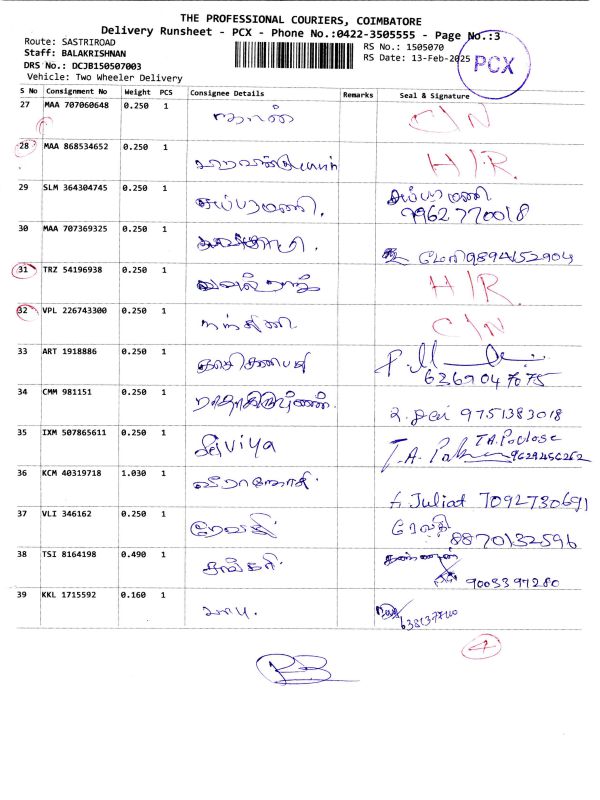 THE PROFESSIONAL COURIERS, COIMBATORE
Delivery Runsheet - PCX - Phone No.:0422-3505555 - Page No.:3
Route: SASTRIROAD
Staff: BALAKRISHNAN
DRS No.: DCJB150507003
Vehicle: Two Wheeler Delivery
RS No.: 1505070
RS Date: 13-Feb-2025
PCX
S No Consignment No Weight PCS Consignee Details Remarks Seal & Signature
27 MAA 707060648 0.250 1 C/N
28 MAA 868534652 0.250 1 H/R.
29 SLM 364304745 0.250 1 சுப்பரமணி. சுப்பரமணி
9962770018
30 MAA 707369325 0.250 1 9894152904
31 TRZ 54196938 0.250 1 H/R
32 VPL 226743300 0.250 1 நந்தினி C/N
33 ART 1918886 0.250 1 சசிகணபதி
6269047675
34 CMM 981151 0.250 1 9751383018
35 IXM 507865611 0.250 1 T.A. Poulose
36 KCM 40319718 1.030 1 Juliat 7092730691
37 VLI 346162 0.250 1 ரேவதி ரேவதி
8870132596
38 TSI 8164198 0.490 1 சங்கரி.
9003397280
39 KKL 1715592 0.160 1 பாபு.
4